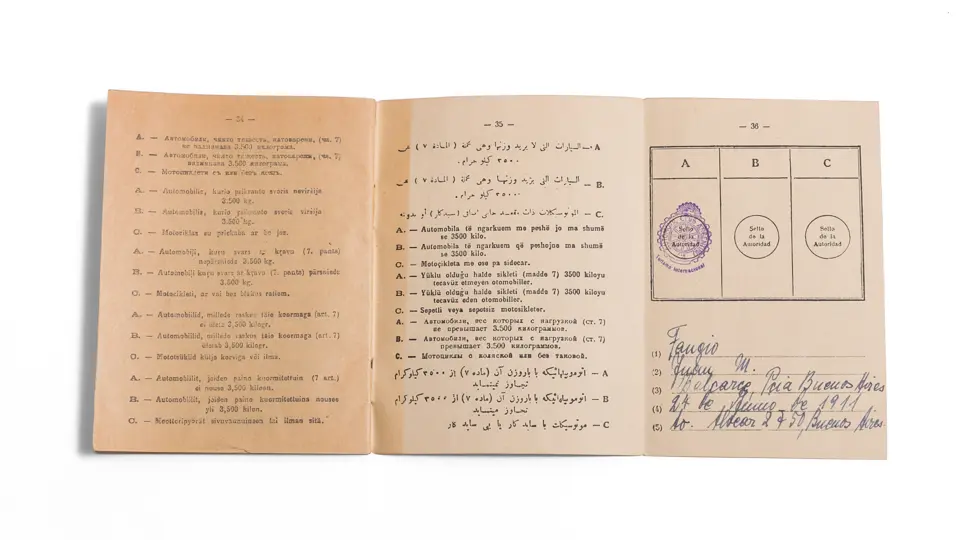 — 34 —
A. — Автомобили, чиято тяжесть, натоварени, (чл. 7)
не надминава 3.500 килограма.
B. — Автомобили, чиято тяжесть, натоварени, (чл. 7)
надминава 3.500 килограма.
C. — Мотоциклети съ или безъ кошъ.
A. — Automobilis, kurio pilkranto svoris neviršija
3.500 kg.
B. — Automobilis, kurio pilkranto svoris viršija
3.500 kg.
C. — Motociklas su priekaba ar be jos.
A. — Automobiļi, kuru svars ar kravu (7. panta)
nepārsniedz 3.500 kg.
B. — Automobiļi kuru svars ar kravu (7. panta) pārsniedz
3.500 kg.
C. — Motocikleti, ar vai bez blakus ratiem.
A. — Automobiilid, millede raskus täie koormaga (art. 7)
ei ületa 3,500 kilogr.
B. — Automobiilid, millede raskus täie koormaga (art. 7)
ületab 3,500 kilogr.
C. — Mototsüklid külje korviga või ilma.
A. — Automobiilit, joiden paino kuormitettuin (7 art.)
ei nouse 3,500 kiloon.
B. — Automobiilit, joiden paino kuormitettuina nousee
yli 3,500 kilon.
C. — Moottoripyörät sivuvaunuineen tai ilman sitä.
— 35 —
A — السيارات التى لا يزيد وزنها وهى محملة (المادة ٧) عن
٣٥٠٠ كيلو جرام.
B. — السيارات التى يزيد وزنها وهى محملة (المادة ٧) عن
٣٥٠٠ كيلو جرام.
C. — الموتوسيكلات ذات مقعد جانبى (سيدكار) أو بدونه
A. — Automobila të ngarkuem me peshë jo ma shumë
se 3500 kilo.
B. — Automobila të ngarkuem që peshojne ma shumë
se 3500 kilo.
C. — Motoçikleta me ose pa sidecar.
A. — Yüklü olduğu halde sikleti (madde 7) 3500 kiloyu
tecavüz etmeyen otomobiller.
B. — Yüklü olduğu halde sikleti (madde 7) 3500 kiloyu
tecavüz eden otomobiller.
C. — Sepetli veya sepetsiz motosikleter.
A. — Автомобили, вес которых с нагрузкой (ст. 7)
не превышает 3.500 килограммов.
B. — Автомобили, вес которых с нагрузкой (ст. 7)
превышает 3.500 килограммов.
C. — Мотоциклы с коляской или без таковой.
A — اتوموبيلهائيكه با بار وزن آن (ماده ٧) از ٣٥٠٠ كيلوگرام
تجاوز نمينمايد
B — اتوموبيلهائيكه با بار وزن آن (ماده ٧) از ٣٥٠٠ كيلوگرام
تجاوز مينمايد
C — موتوسيكلت با سايد كار يا بى سايد كار
— 36 —
A B C
Sello
de la
Autoridad
Sello
de la
Autoridad
Sello
de la
Autoridad
(1) Fangio
(2) Juan M.
(3) Balcarce Pcia Buenos Aires
(4) 24 de Junio de 1911
(5) Alvear 2750 Buenos Aires